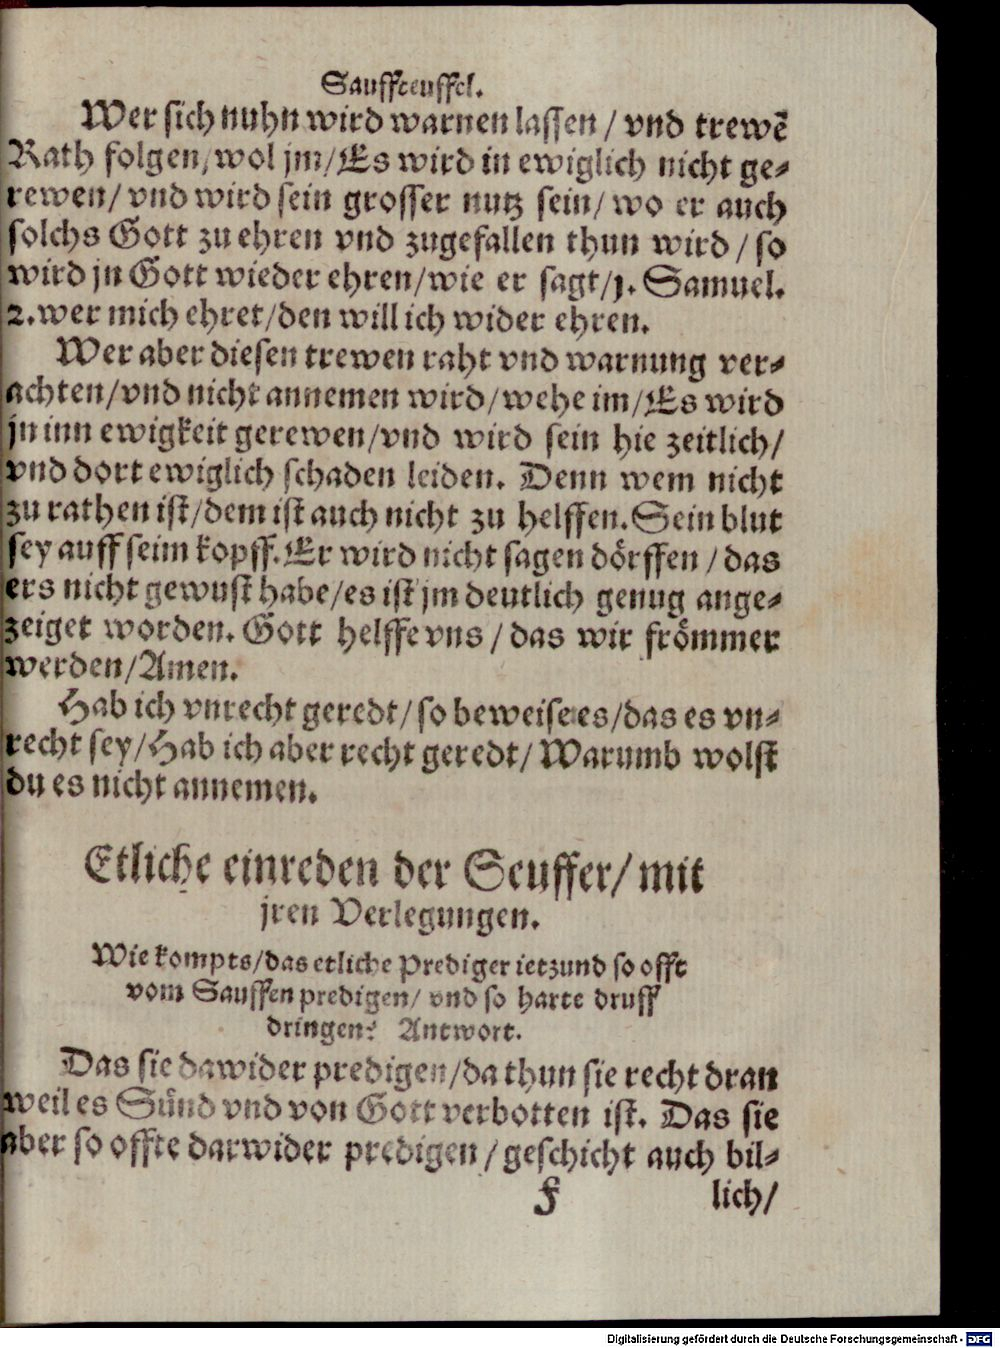 Sauffteuffel.
Wer sich nuhn wird warnen lassen / vnd trewẽ
Rath folgen, wol jm/Es wird in ewiglich nicht ge⸗
rewen/ vnd wird sein grosser nutz sein/ wo er auch
solchs Gott zu ehren vnd zugefallen thun wird / so
wird jn Gott wieder ehren/wie er sagt/1. Samuel.
2. wer mich ehret/den will ich wider ehren.
Wer aber diesen trewen raht vnd warnung ver⸗
achten/vnd nicht annemen wird/wehe im/Es wird
jn inn ewigkeit gerewen/vnd wird sein hie zeitlich/
vnd dort ewiglich schaden leiden. Denn wem nicht
zu rathen ist/dem ist auch nicht zu helffen. Sein blut
sey auff seim kopff. Er wird nicht sagen dörffen / das
ers nicht gewust habe/es ist jm deutlich genug ange⸗
zeiget worden. Gott helffe vns / das wir frömmer
werden/Amen.
Hab ich vnrecht geredt/so beweise es/das es vn⸗
recht sey/Hab ich aber recht geredt/ Warumb wolst
du es nicht annemen.
Etliche einreden der Seuffer/ mit
jren Verlegungen.
Wie kompts/das etliche Prediger ietzund so offt
vom Sauffen predigen/ vnd so harte druff
dringen? Antwort.
Das sie dawider predigen/da thun sie recht dran
weil es Sünd vnd von Gott verbotten ist. Das sie
aber so offte darwider predigen / geschicht auch bil⸗
F lich/
Digitalisierung gefördert durch die Deutsche Forschungsgemeinschaft - DFG